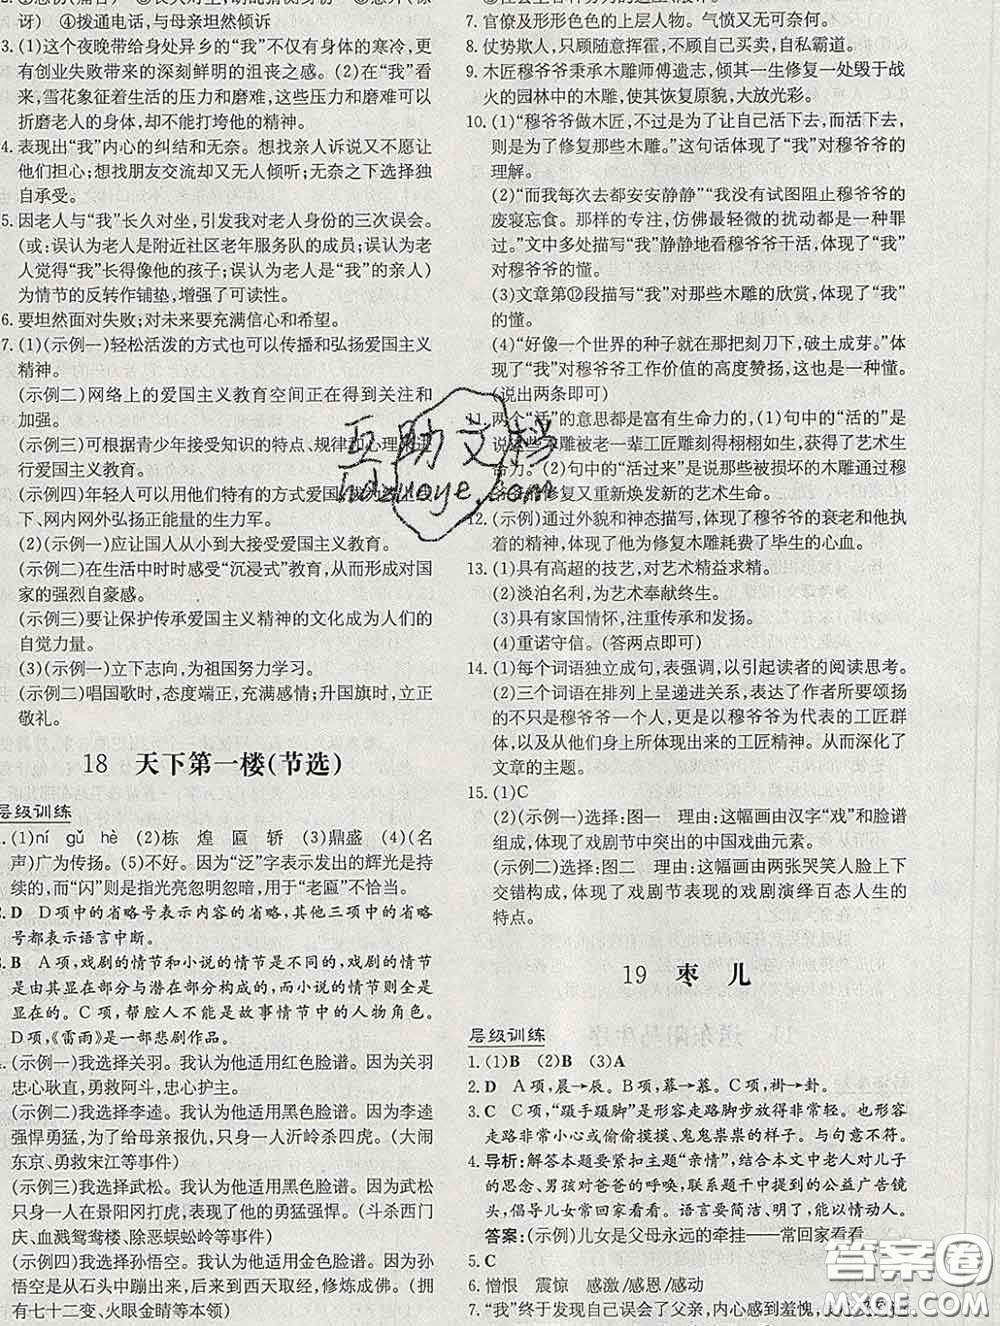 讶) ④拨通电话,与母亲坦然倾诉
3. (1)这个夜晚带给身处异乡的“我”不仅有身体的寒冷,更
有创业失败带来的深刻鲜明的沮丧之感。(2)在“我”看
来,雪花象征着生活的压力和磨难,这些压力和磨难可以
折磨老人的身体,却不能打垮他的精神。
4. 表现出“我”内心的纠结和无奈。想找亲人诉说又不愿让
他们担心;想找朋友交流却又无人倾听;无奈之下选择独
自承受。
5. 因老人与“我”长久对坐,引发我对老人身份的三次误会。
(或:误认为老人是附近社区老年服务队的成员;误认为老
人觉得“我”长得像他的孩子;误认为老人是“我”的亲人)
为情节的反转作铺垫,增强了可读性。
6. 要坦然面对失败;对未来要充满信心和希望。
7. (1)(示例一)轻松活泼的方式也可以传播和弘扬爱国主义
精神。
(示例二)网络上的爱国主义教育空间正在得到关注和
加强。
(示例三)可根据青少年接受知识的特点、规律和心理进
行爱国主义教育。
(示例四)年轻人可以用他们特有的方式爱国,成为网上网
下、网内网外弘扬正能量的生力军。
(2)(示例一)应让国人从小到大接受爱国主义教育。
(示例二)在生活中时时感受“沉浸式”教育,从而形成对国
家的强烈自豪感。
(示例三)要让保护传承爱国主义精神的文化成为人们的
自觉力量。
(3)(示例一)立下志向,为祖国努力学习。
(示例二)唱国歌时,态度端正,充满感情;升国旗时,立正
敬礼。
18 天下第一楼(节选)
层级训练
(1)ní gǔ hè (2)栋 煌 匾 轿 (3)鼎盛 (4)(名
声)广为传扬。(5)不好。因为“泛”字表示发出的辉光是持
续的,而“闪”则是指光亮忽明忽暗,用于“老匾”不恰当。
D D项中的省略号表示内容的省略,其他三项中的省略
号都表示语言中断。
B A项,戏剧的情节和小说的情节是不同的,戏剧的情节
是由其显在部分与潜在部分构成的,而小说的情节则全是
显在的。C项,帮腔人不能是故事情境内的人物角色。
D项,《雷雨》是一部悲剧作品。
(示例一)我选择关羽。我认为他适用红色脸谱。因关羽
忠心耿直,勇救阿斗,忠心护主。
(示例二)我选择李逵。我认为他适用黑色脸谱。因李逵
强悍勇猛,为了给母亲报仇,只身一人沂岭杀四虎。(大闹
东京、勇救宋江等事件)
(示例三)我选择武松。我认为他适用黑色脸谱。因武松
只身一人在景阳冈打虎,表现了他的勇猛强悍。(斗杀西门
庆、血溅鸳鸯楼、除恶蜈蚣岭等事件)
(示例四)我选择孙悟空。我认为他适用金色脸谱。因孙
悟空是从石头中蹦出来,后来到西天取经,修炼成佛。(拥
有七十二变、火眼金睛等本领)
7. 官僚及形形色色的上层人物。气愤又无可奈何。
8. 仗势欺人,只顾随意挥霍,不顾自己买卖,自私霸道。
9. 木匠穆爷爷秉承木雕师傅遗志,倾其一生修复一处毁于战
火的园林中的木雕,使其恢复原貌,大放光彩。
10. (1)“穆爷爷做木匠,不过是为了让自己活下去,而活下去,
则是为了修复那些木雕。”这句话体现了“我”对穆爷爷的
理解。
(2)“而我每次去都安安静静”“我没有试图阻止穆爷爷的
废寝忘食。那样的专注,仿佛最轻微的扰动都是一种罪
过。”文中多处描写“我”静静地看穆爷爷干活,体现了“我”
对穆爷爷的懂。
(3)文章第⑫段描写“我”对那些木雕的欣赏,体现了“我”
的懂。
(4)“好像一个世界的种子就在那把刻刀下,破土成芽。”体
现了“我”对穆爷爷工作价值的高度赞扬,这也是一种懂。
(说出两条即可)
11. 两个“活”的意思都是富有生命力的,(1)句中的“活的”是
说这些木雕被老一辈工匠雕刻得栩栩如生,获得了艺术生
命力。(2)句中的“活过来”是说那些被损坏的木雕通过穆
爷爷修复又重新焕发新的艺术生命。
12. (示例)通过外貌和神态描写,体现了穆爷爷的衰老和他执
着的精神,体现了他为修复木雕耗费了毕生的心血。
13. (1)具有高超的技艺,对艺术精益求精。
(2)淡泊名利,为艺术奉献终生。
(3)具有家国情怀,注重传承和发扬。
(4)重诺守信。(答两点即可)
14. (1)每个词语独立成句,表强调,以引起读者的阅读思考。
(2)三个词语在排列上呈递进关系,表达了作者所要颂扬
的不只是穆爷爷一个人,更是以穆爷爷为代表的工匠群
体,以及从他们身上所体现出来的工匠精神。从而深化了
文章的主题。
15. (1)C
(2)(示例一)选择:图一 理由:这幅画由汉字“戏”和脸谱
组成,体现了戏剧节中突出的中国戏曲元素。
(示例二)选择:图二 理由:这幅画由两张哭笑人脸上下
交错构成,体现了戏剧节表现的戏剧演绎百态人生的
特点。
19 枣 儿
层级训练
1. (1)B (2)B (3)A
2. D A项,晨→辰。B项,幕→慕。C项,褂→卦。
3. C C项,“蹑手蹑脚”是形容走路脚步放得非常轻。也形容
走路非常小心或偷偷摸摸、鬼鬼祟祟的样子。与句意不符。
4. 导析:解答本题要紧扣主题“亲情”,结合本文中老人对儿子
的思念、男孩对爸爸的呼唤,联系题干中提到的公益广告镜
头,倡导儿女常回家看看。语言要简洁、明了,能以情动人。
答案:(示例)儿女是父母永远的牵挂——常回家看看。
5. C
6. 憎恨 震惊 感激/感恩/感动
7. “我”终于发现自己误会了父亲,内心感到羞愧,
互助文档
hdzuoye.com
答案圈
MXQE.COM